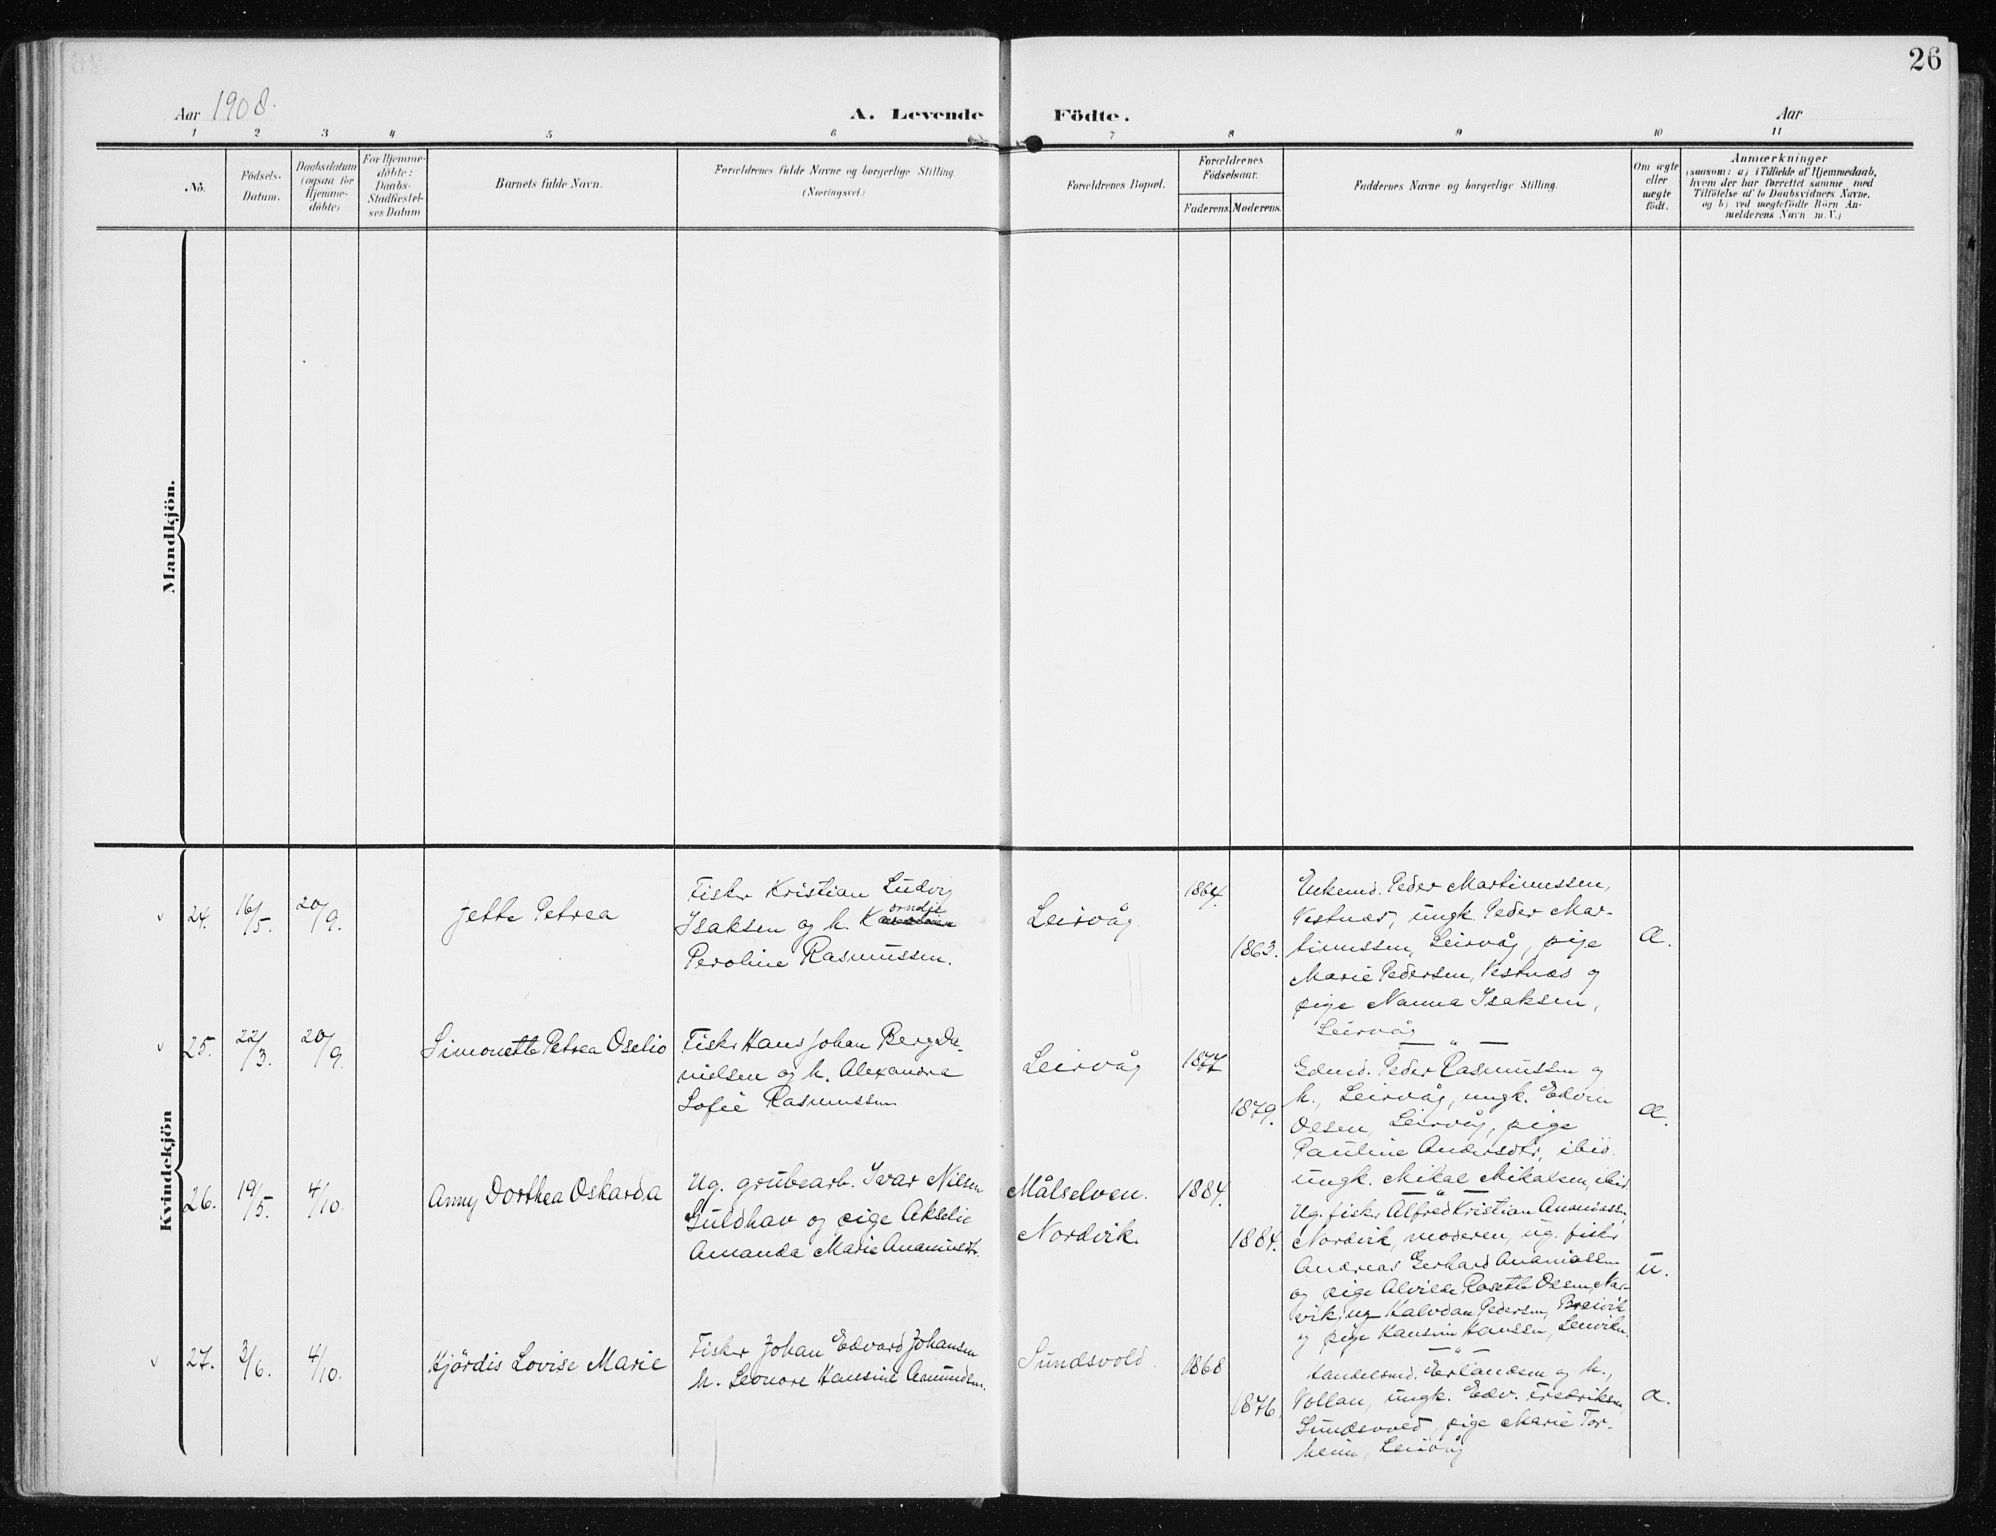 26
Aar 1908.
A. Levende Födte.
Aar
1 2 3 4 5 6 7 8 9 10 11
No.
Födsels-
Datum.
Daabsdatum
(ogsaa for
Hjemme-
döbte)
For Hjemme-
döbte:
Daabs-
Stadfæstel-
ses Datum
Barnets fulde Navn.
Forældrenes fulde Navne og borgerlige Stilling.
(Næringsvei.)
Forældrenes Bopæl.
Forældrenes
Födselsaar.
Faderens.
Moderens.
Faddernes Navne og borgerlige Stilling.
Om ægte
eller
uægte
födt.
Anmærkninger
(saasom: a) i Tilfælde af Hjemmedaab,
hvem der har forrettet samme, med
Tilföielse af to Daabsvidners Navne,
og b) ved uægtefödte Börn An-
melderens Navn m. V.)
Mandkjön.
Kvindekjön
v 24.
16/5.
20/9.
Jette Petrea
Fisker Kristian Ludvig
Isaksen og h. Kornelie
Peroline Rasmussen.
Leirvåg.
1864.
1863.
Enkemd. Peder Martinussen,
Vestnæs, ungk. Peder Mar-
tinussen, Leirvåg, pige
Marie Pedersen, Vestnæs og
pige Nanna Isaksen,
Leirvåg
æ.
— " —
v 25.
22/3.
20/9.
Simonette Petrea Oselio
Fisker Hans Johan Berg Da-
nielsen og h. Alexandra
Sofie Rasmussen
Leirvåg
1877
1879.
Gdmd. Peder Rasmussen og
h., Leirvåg, ungk. Edvin
Olsen, Leirvåg, pige
Pauline Andersdtr, ibid.
ungk. Mikal Mikalsen, ibid.
æ.
— " —
26.
19/5.
4/10.
Anny Dorthea Oskarda
Ug. grubearb. Ivar Nilsen
Guldhav og pige Akselie
Amanda Marie Ananiasdtr.
Målselven.
Nordvik.
1884.
1884.
Ug. fisker Alfred Kristian Ananiassen,
Nordvik, moderen, ug. fisker
Andreas Gerhard Ananiassen
og pige Alvilde Rosette Olsen, Nor-
vik, ug Halvdan Pedersen, Breivik
og pige Hansine Hanssen, Lenvik.
u.
— " —
v 27.
3/6.
4/10.
Hjördis Lovise Marie
Fisker Johan Edvard Johansen
h. Leonore Hansine Amundsen.
Sundsvold.
1868
1876.
Handelsmd. Erlandsen og h.,
Vollan, ungk. Edv. Fredriksen,
Sundsvold, pige Marie Tor-
heim, Leirvåg
æ.